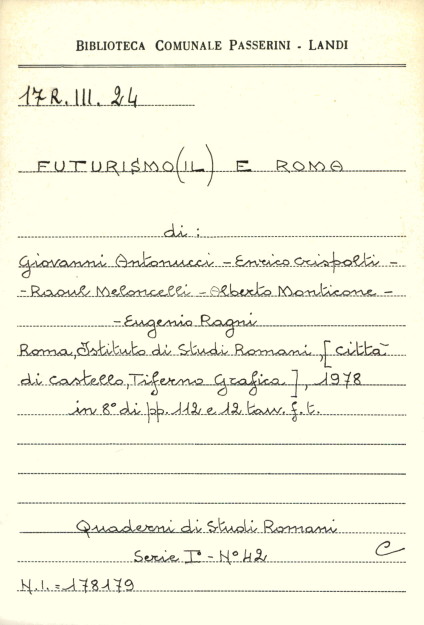 BIBLIOTECA COMUNALE PASSERINI - LANDI
17R.III.24
FUTURISMO (IL) E ROMA
di :
Giovanni Antonucci - Enrico Crispolti -
- Raoul Meloncelli - Alberto Monticone -
- Eugenio Ragni
Roma, Istituto di Studi Romani, [Città
di Castello, Tiferno Grafica], 1978
in 8° di pp. 112 e 12 tav. f. t.
Quaderni di Studi Romani
Serie I° - N° 42
C
N.I. = 178179